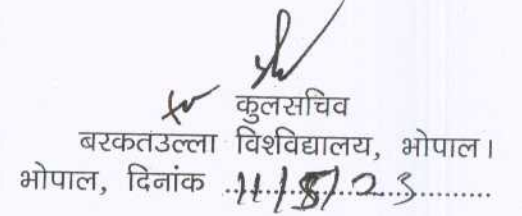 कुलसचिव
बरकतउल्ला विश्वविद्यालय, भोपाल।
भोपाल, दिनांक ..11/8/23..........